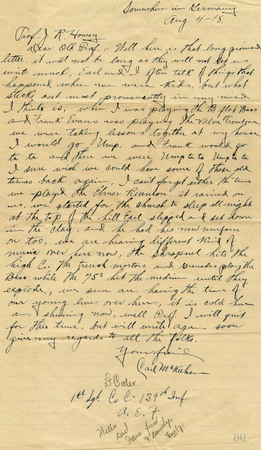 Somewhere in Germany
Aug 4-18.
Prof. J. R. Honey
Dear Old Prof: Well here is that long promised
letter, it will not be long as they will not let us
write much, Earl and I often talk of things that
happened when we were kids, but what
sticks out most prominently in my mind
I think is, when I was playing the B flat Bass
and Frank Evans was playing the Valve Trombone
we were taking lessons together at my house
I would go Ump. and Frank would go
ta ta and then we were Umpta ta Umpta ta
I sure wish we could have some of those old
times back again, I can't forget either the time
we played the it rained on
us, we started for the church to sleep all night
at the top of the hill Earl slipped and sat down
in the clay, and he had his new uniform
on too, we are hearing different kind of
music over here now, the shrapnel hits the
high C. the trench mortars and grenades plays the
Bass while the 75s hit the medium until they
explode, we sure are having the time of
our young lives over here, it is cold him
am shivering now, well Prof I will quit
for this time, but will write again soon
give my regards to all the folks.
Your friend
Carl McKahan
1st Sgt. Co C. 139th Inf.
A. E. F.
Hello